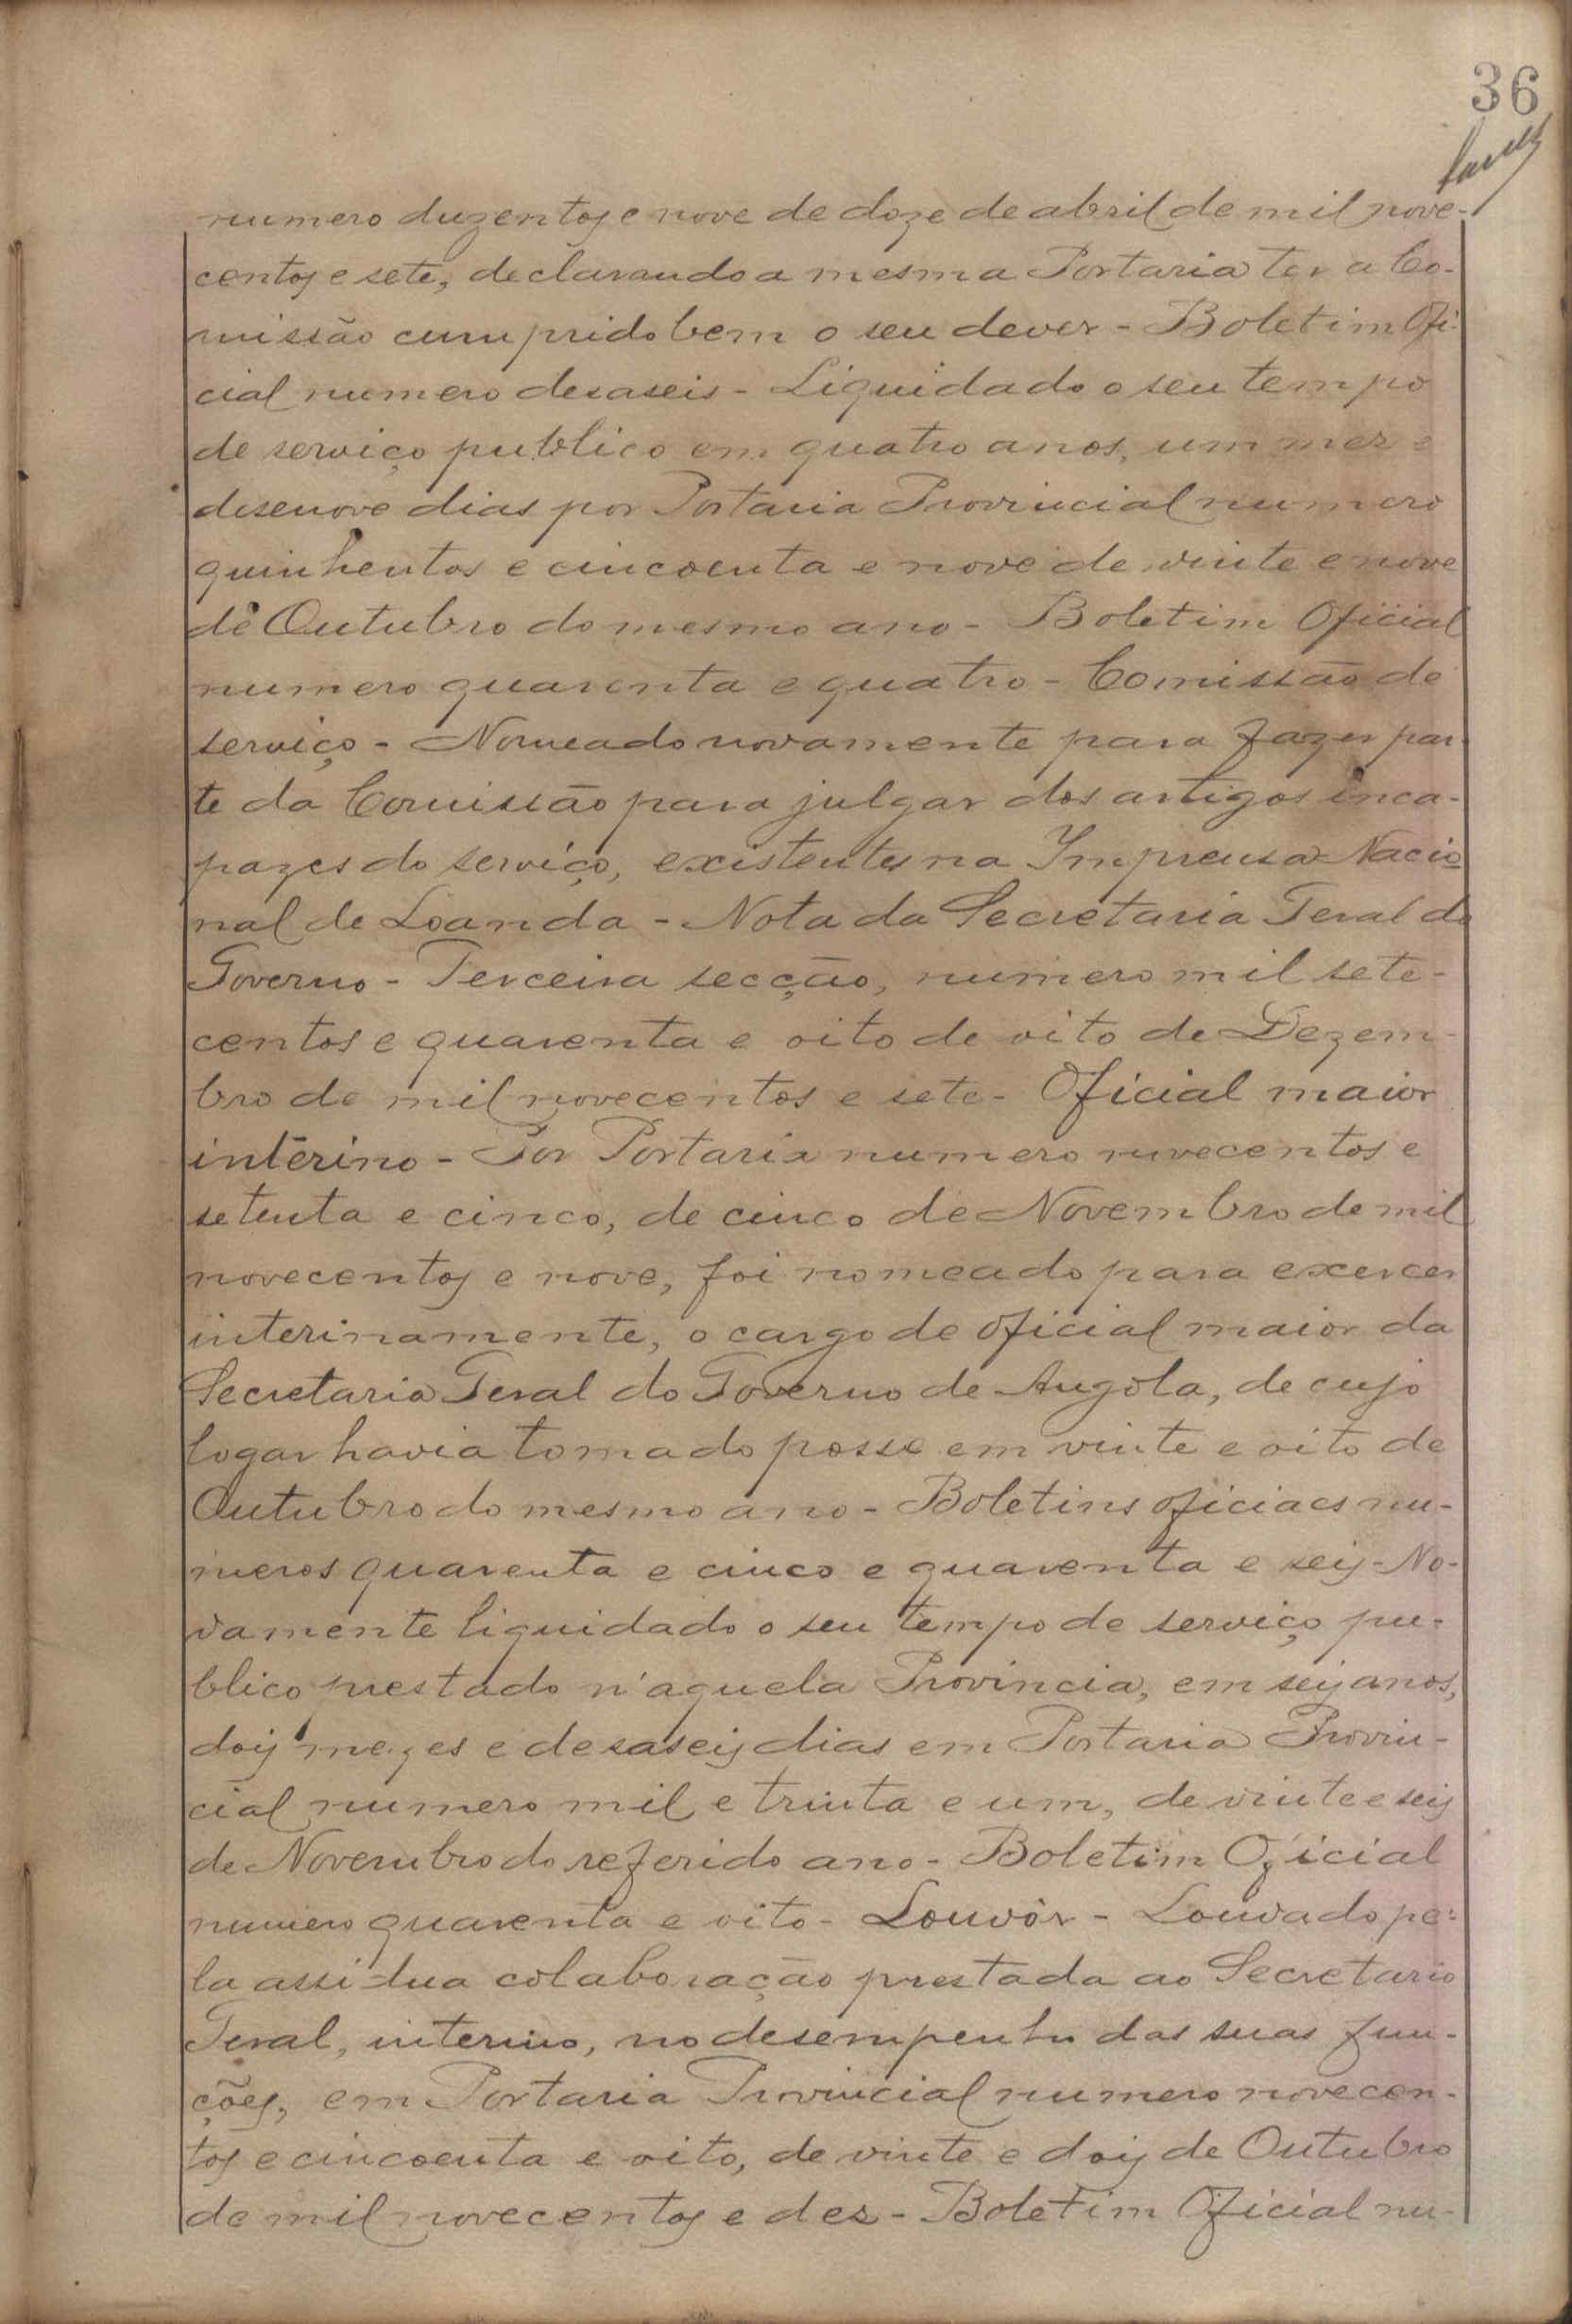 36
numero duzentos e nove de doze de abril de mil nove-
centos e sete, declarando a mesma Portaria ter a Co-
missão cumprido bem o seu dever - Boletim Ofi-
cial numero desaseis - Liquidado o seu tempo
de serviço publico em quatro anos, um mez e
desenove dias por Portaria Provincial numero
quinhentos e cincoenta e nove de vinte e nove
de Outubro do mesmo ano - Boletim Oficial
numero quarenta e quatro - Comissão de
serviço - Nomeado novamente para fazer par-
te da Comissão para julgar dos artigos inca-
pazes do serviço, existentes na Imprensa Nacio-
nal de Loanda - Nota da Secretaria Geral do
Governo - Terceira secção, numero mil sete-
centos e quarenta e oito de oito de Dezem-
bro de mil novecentos e sete - Oficial maior
interino - Por Portaria numero novecentos e
setenta e cinco, de cinco de Novembro de mil
novecentos e nove, foi nomeado para exercer
interinamente, o cargo de oficial maior da
Secretaria Geral do Governo de Angola, de cujo
logar havia tomado posse em vinte e oito de
Outubro do mesmo ano - Boletins oficiaes nu-
meros quarenta e cinco e quarenta e seis - No-
vamente liquidado o seu tempo de serviço pu-
blico prestado n'aquela Provincia, em seis anos,
dois mezes e desaseis dias em Portaria Provin-
cial numero mil e trinta e um, de vinte e seis
de Novembro do referido ano - Boletim Oficial
numero quarenta e oito - Louvôr - Louvado pe-
la assidua colaboração prestada ao Secretario
Geral, interino, no desempenho das suas fun-
ções, em Portaria Provincial numero novecen-
tos e cincoenta e oito, de vinte e dois de Outubro
de mil novecentos e dez - Boletim Oficial nu-